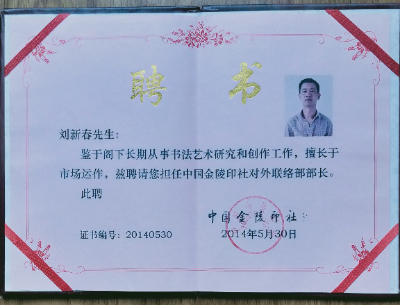 聘书
刘新春先生：
鉴于阁下长期从事书法艺术研究和创作工作，擅长于
市场运作，兹聘请您担任中国金陵印社对外联络部部长。
此聘
中国金陵印社
证书编号：20140530
2014年5月30日